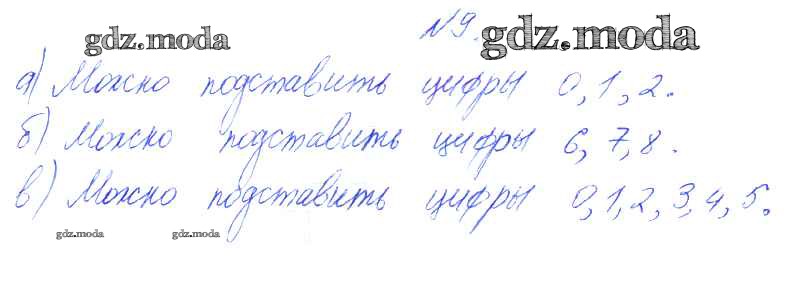 №9.
gdz.moda gdz.moda
а) Можно подставить цифры 0, 1, 2.
б) Можно подставить цифры 6, 7, 8.
в) Можно подставить цифры 0, 1, 2, 3, 4, 5.
gdz.moda gdz.moda